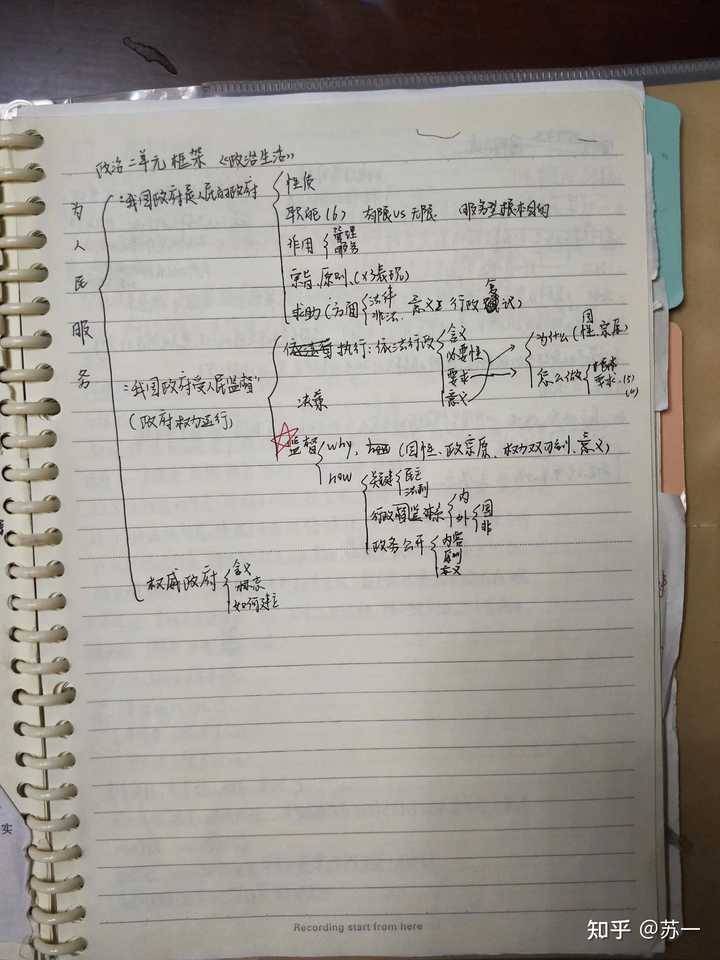 政治二单元框架《政治生活》
为人民服务
一:我国政府是人民的政府
性质
职能(6) 有限vs无限 服务型根本目的
作用 管理
服务
宗旨、原则、(×3表现)
求助(方面 法律 意义 行政复议)
非法
二:我国政府受人民监督
(政府权力运行)
执行:依法行政 含义
必要性
要求
意义
为什么(国性.宗原)
怎么做 要求
决策
监督 why、(国性、政宗原、权力双刃剑、意义)
how 关键 民主
法制
行政监体系 内
外 国
非
政务公开 内容
原则
意义
权威政府 含义
标志
如何建立
Recording start from here
实
知乎 @苏一